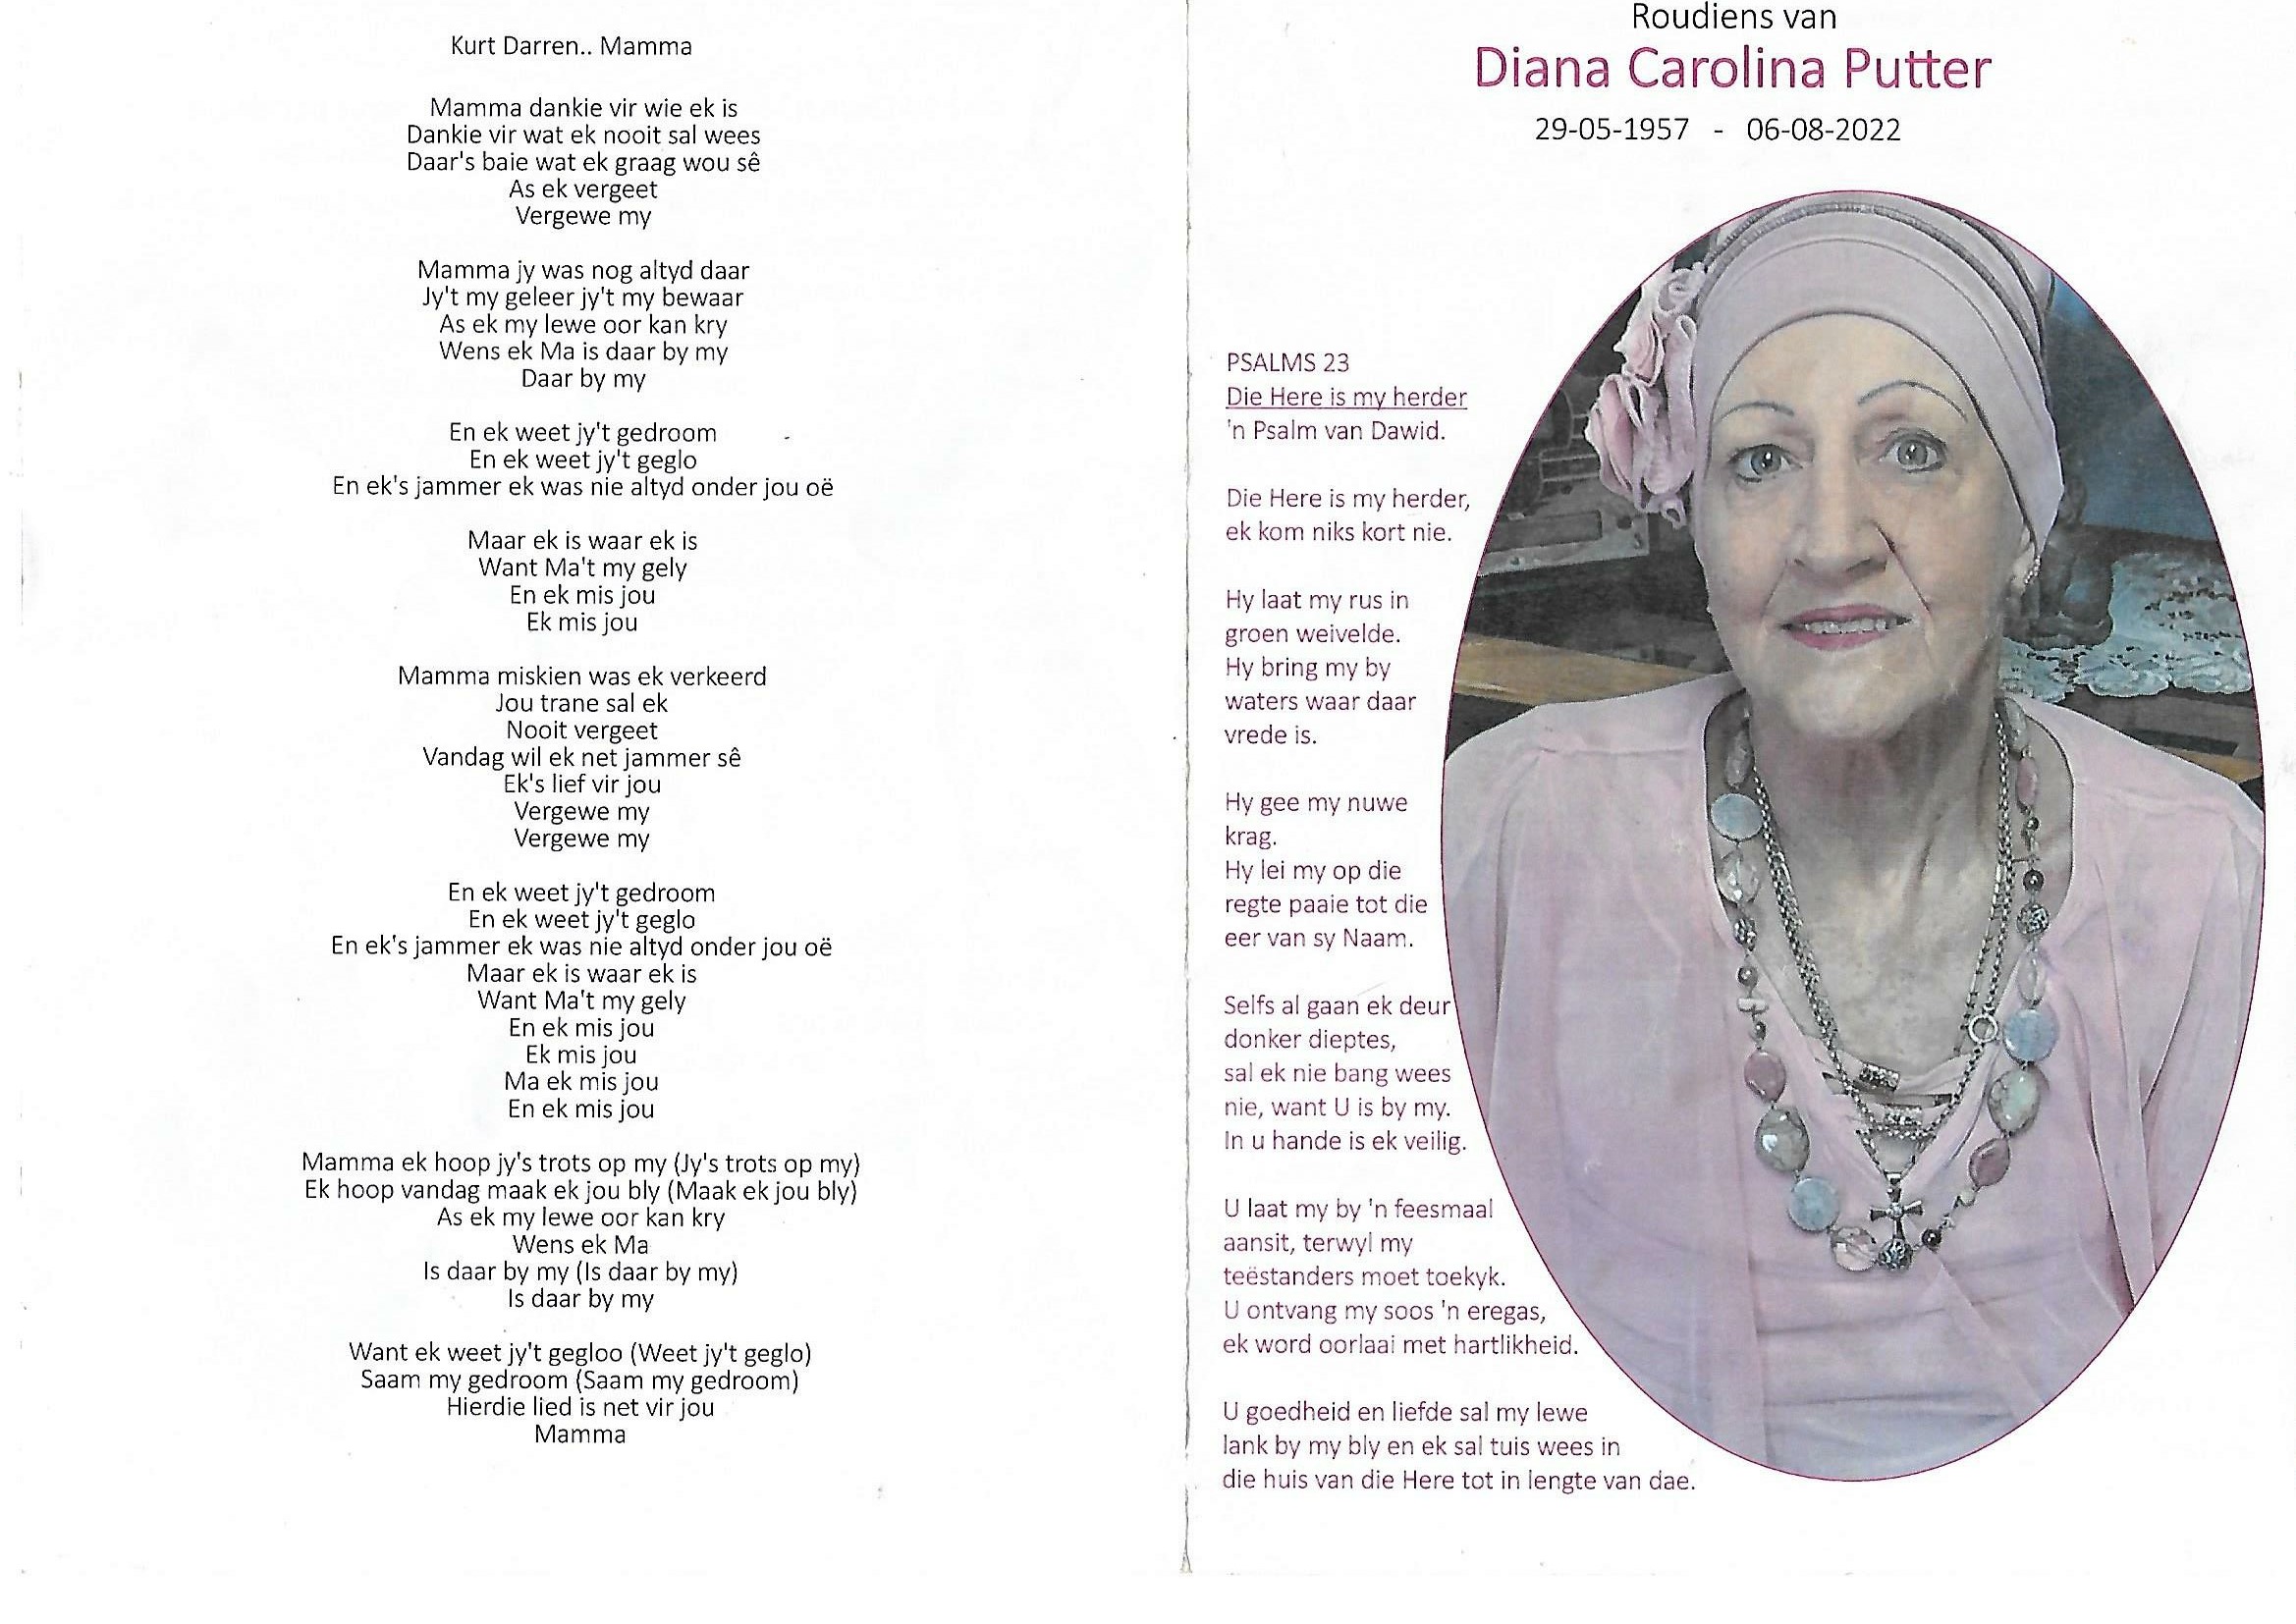 Kurt Darren.. Mamma
Mamma dankie vir wie ek is
Dankie vir wat ek nooit sal wees
Daar's baie wat ek graag wou sê
As ek vergeet
Vergewe my
Mamma jy was nog altyd daar
Jy't my geleer jy't my bewaar
As ek my lewe oor kan kry
Wens ek Ma is daar by my
Daar by my
En ek weet jy't gedroom
En ek weet jy't geglo
En ek's jammer ek was nie altyd onder jou oë
Maar ek is waar ek is
Want Ma't my gely
En ek mis jou
Ek mis jou
Mamma miskien was ek verkeerd
Jou trane sal ek
Nooit vergeet
Vandag wil ek net jammer sê
Ek's lief vir jou
Vergewe my
Vergewe my
En ek weet jy't gedroom
En ek weet jy't geglo
En ek's jammer ek was nie altyd onder jou oë
Maar ek is waar ek is
Want Ma't my gely
En ek mis jou
Ek mis jou
Ma ek mis jou
En ek mis jou
Mamma ek hoop jy's trots op my (Jy's trots op my)
Ek hoop vandag maak ek jou bly (Maak ek jou bly)
As ek my lewe oor kan kry
Wens ek Ma
Is daar by my (Is daar by my)
Is daar by my
Want ek weet jy't gegloo (Weet jy't geglo)
Saam my gedroom (Saam my gedroom)
Hierdie lied is net vir jou
Mamma
Roudiens van
Diana Carolina Putter
29-05-1957 - 06-08-2022
PSALMS 23
Die Here is my herder
'n Psalm van Dawid.
Die Here is my herder,
ek kom niks kort nie.
Hy laat my rus in
groen weivelde.
Hy bring my by
waters waar daar
vrede is.
Hy gee my nuwe
krag.
Hy lei my op die
regte paaie tot die
eer van sy Naam.
Selfs al gaan ek deur
donker dieptes,
sal ek nie bang wees
nie, want U is by my.
In u hande is ek veilig.
U laat my by 'n feesmaal
aansit, terwyl my
teëstanders moet toekyk.
U ontvang my soos 'n eregas,
ek word oorlaai met hartlikheid.
U goedheid en liefde sal my lewe
lank by my bly en ek sal tuis wees in
die huis van die Here tot in lengte van dae.